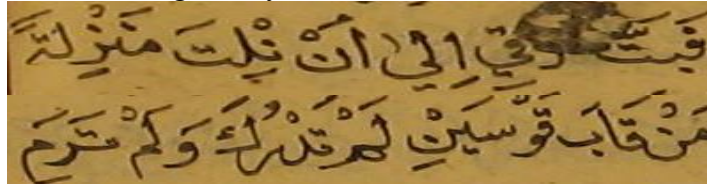 فَبَتَّ ترقِي اِلِي اَنْ نِلتَ مَنْزِلَةً
مَنْ قَابَ قَوَّسَيَنِْ لَمْ تَدْرُكَ وَلَمْ تَرَمِ